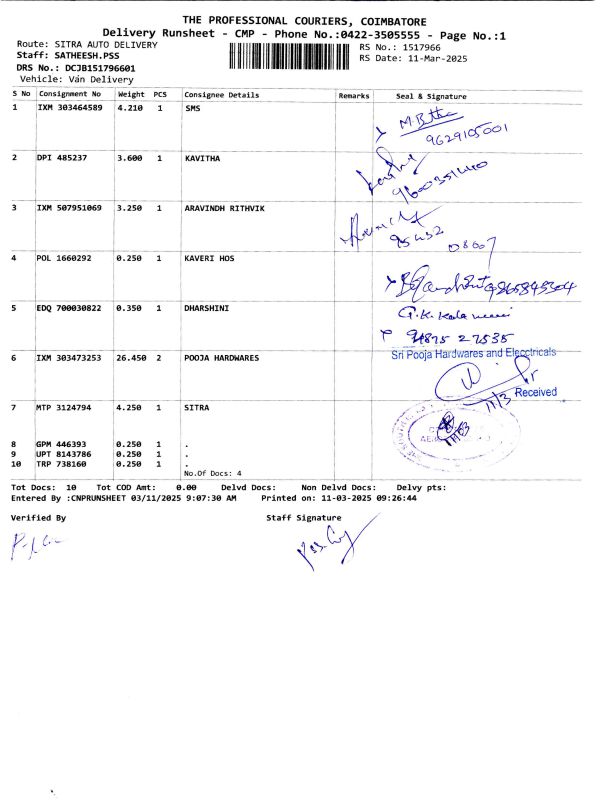 THE PROFESSIONAL COURIERS, COIMBATORE
Delivery Runsheet - CMP - Phone No.:0422-3505555 - Page No.:1
Route: SITRA AUTO DELIVERY
RS No.: 1517966
Staff: SATHEESH.PSS
RS Date: 11-Mar-2025
DRS No.: DCJB151796601
Vehicle: Van Delivery
S No Consignment No Weight PCS Consignee Details Remarks Seal & Signature
1 IXM 303464589 4.210 1 SMS
9629105001
2 DPI 485237 3.600 1 KAVITHA
3 IXM 507951069 3.250 1 ARAVINDH RITHVIK
95432
08007
4 POL 1660292 0.250 1 KAVERI HOS
5 EDQ 700030822 0.350 1 DHARSHINI
27535
6 IXM 303473253 26.450 2 POOJA HARDWARES
Sri Pooja Hardwares and Elecctricals
11/3 Received
7 MTP 3124794 4.250 1 SITRA
8 GPM 446393 0.250 1 .
9 UPT 8143786 0.250 1 .
10 TRP 738160 0.250 1 .
No.Of Docs: 4
Tot Docs: 10 Tot COD Amt: 0.00 Delvd Docs: Non Delvd Docs: Delvy pts:
Entered By :CNPRUNSHEET 03/11/2025 9:07:30 AM Printed on: 11-03-2025 09:26:44
Verified By Staff Signature